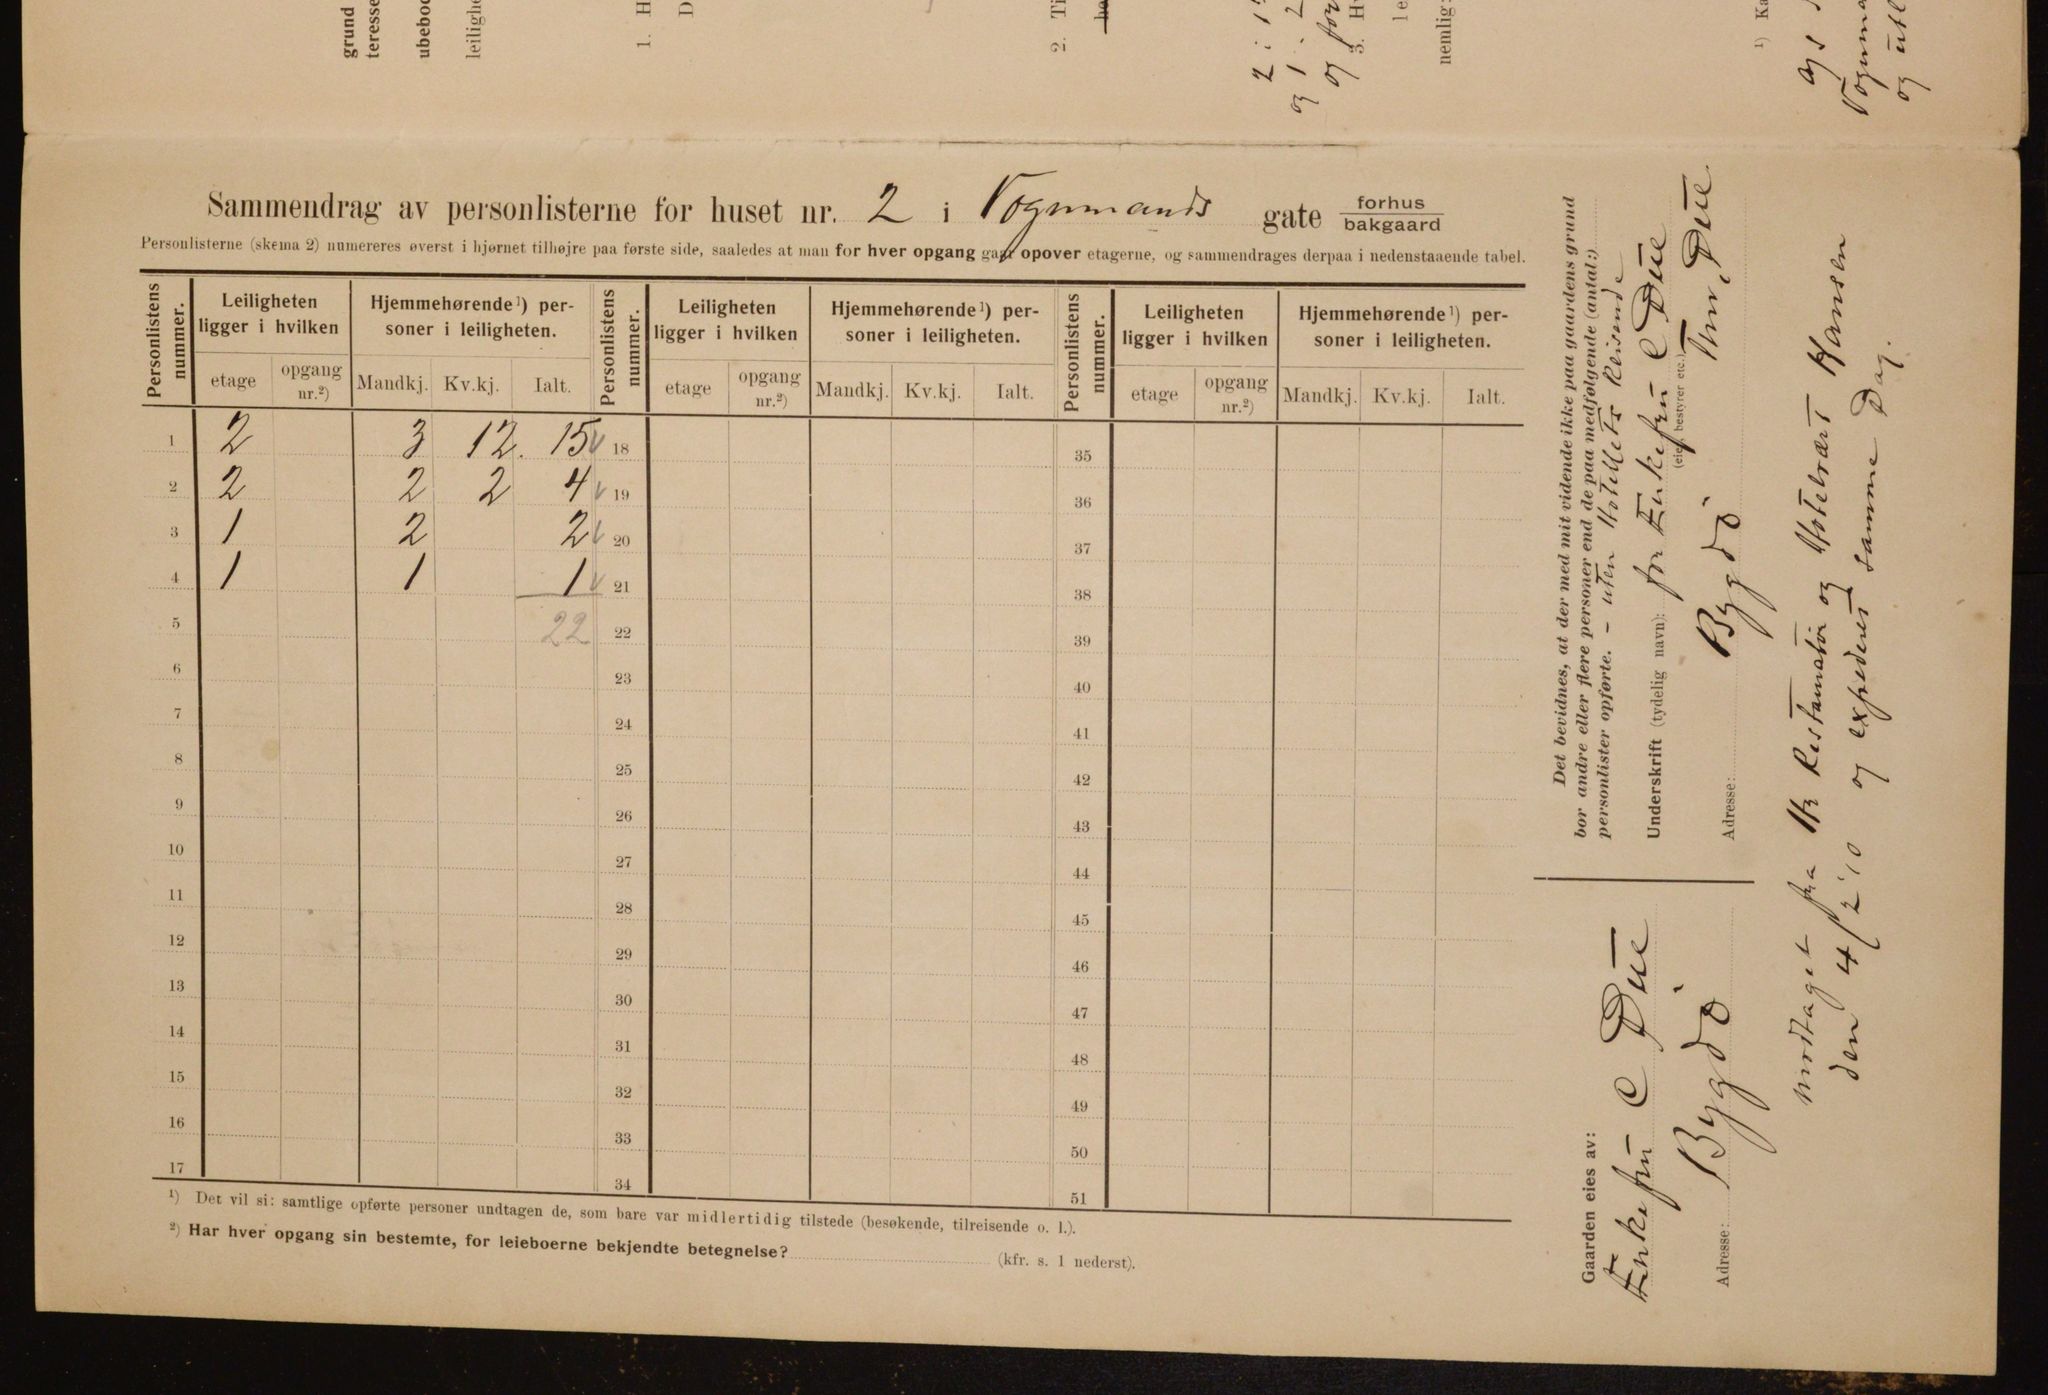 grund
teresse
ubeboe
leilighe
1. H
D
2. Ti
be
2 : 1
og 1 : 2
og for
3. Hv
le
nemlig:
¹) Ka
og
Vognma
og utl
Sammendrag av personlisterne for huset nr. 2 i Vognmands gate forhus
bakgaard
Personlisterne (skema 2) numereres øverst i hjørnet tilhøjre paa første side, saaledes at man for hver opgang gaar opover etagerne, og sammendrages derpaa i nedenstaaende tabel.
Personlistens nummer. Leiligheten ligger i hvilken Hjemmehørende¹) personer i leiligheten. Personlistens nummer. Leiligheten ligger i hvilken Hjemmehørende¹) personer i leiligheten. Personlistens nummer. Leiligheten ligger i hvilken Hjemmehørende¹) personer i leiligheten.
etage opgang nr.²) Mandkj. Kv.kj. Ialt. etage opgang nr.²) Mandkj. Kv.kj. Ialt. etage opgang nr.²) Mandkj. Kv.kj. Ialt.
1 2 3 12. 15 18 35
2 2 2 2 4 19 36
3 1 2 2 20 37
4 1 1 1 21 38
5 22 22 39
6 23 40
7 24 41
8 25 42
9 26 43
10 27 44
11 28 45
12 29 46
13 30 47
14 31 48
15 32 49
16 33 50
17 34 51
¹) Det vil si: samtlige opførte personer undtagen de, som bare var midlertidig tilstede (besøkende, tilreisende o. l.).
²) Har hver opgang sin bestemte, for leieboerne bekjendte betegnelse? (kfr. s. 1 nederst).
Det bevidnes, at der med mit vidende ikke paa gaardens grund
bor andre eller flere personer end de paa medfølgende (antal:)
personlister opførte. - uten Hotellets Reisende
Underskrift (tydelig navn): for Enkefru C Due
(eier, bestyrer etc.)
Thv. Due.
Adresse: Bygdö
Gaarden eies av:
Enkefru C Due
Adresse: Bygdö
modtaget fra Hr Restauratör og Hotelvært Hansen
den 4/2 '10 og expederet samme Dag.